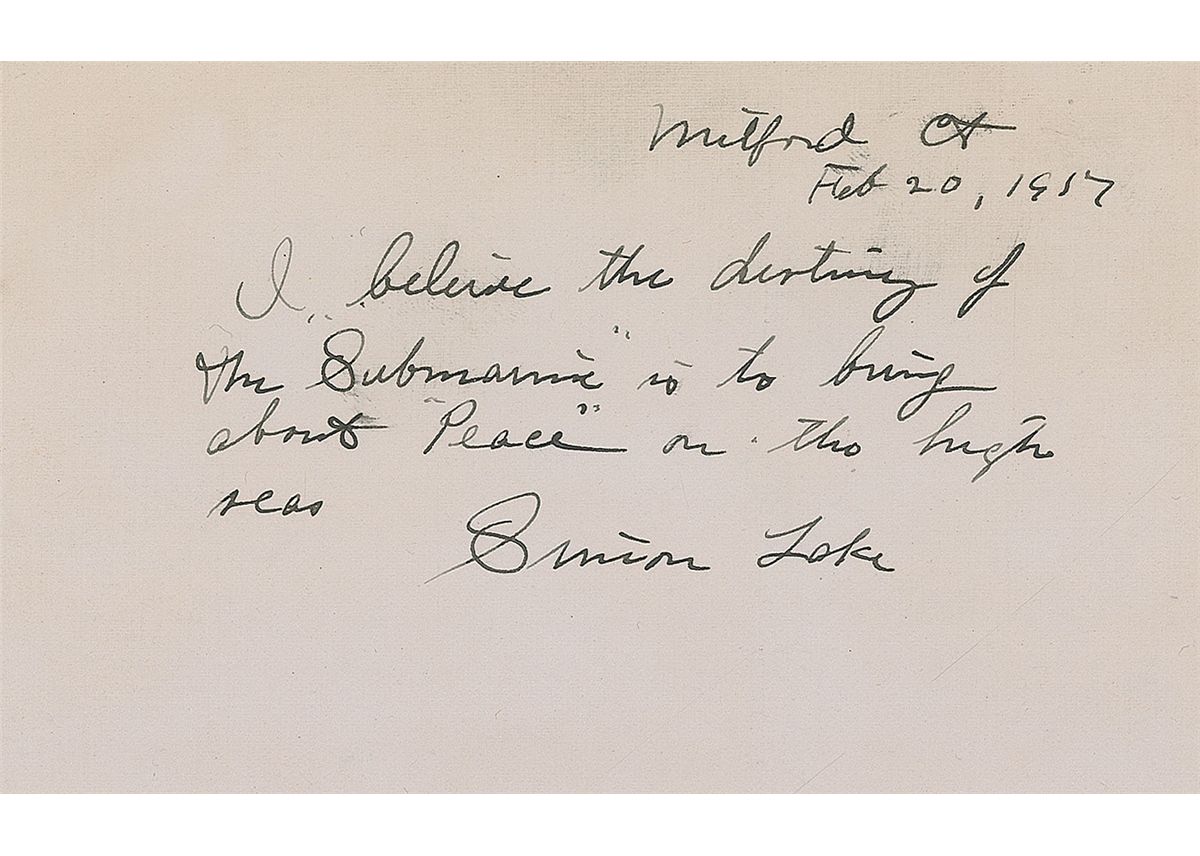 Milford Ct
Feb 20,
I beleive the destiny of
the "Submarine" is to bring
about "Peace" on the high
seas
Simon Lake